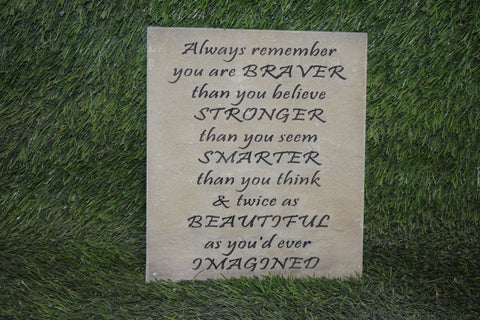 Always remember
you are BRAVER
than you believe
STRONGER
than you seem
SMARTER
than you think
& twice as
BEAUTIFUL
as you'd ever
IMAGINED